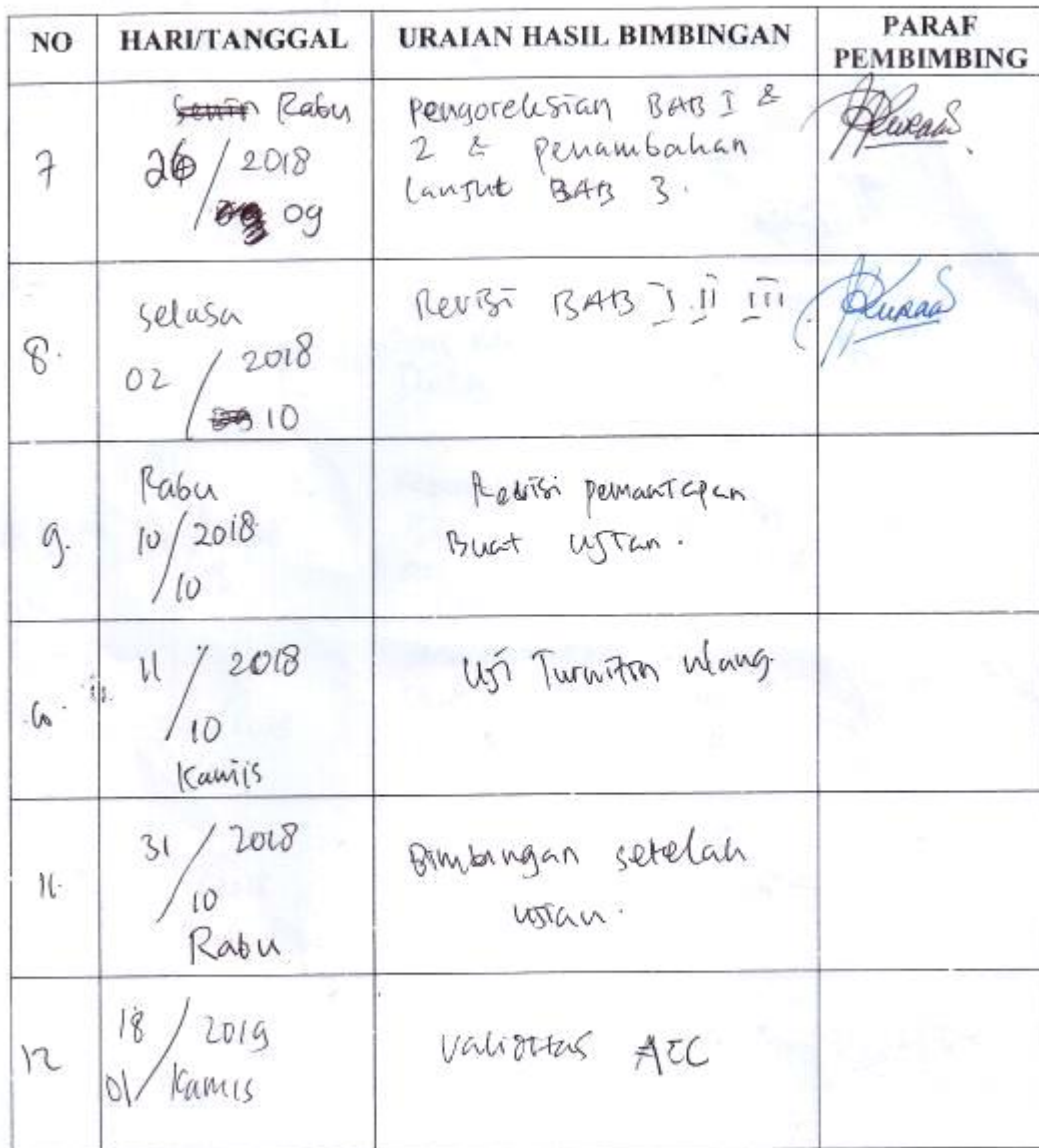 NO HARI/TANGGAL URAIAN HASIL BIMBINGAN PARAF PEMBIMBING
7
Senin Rabu
26 / 2018
09
Pengoreksian BAB I &
2 & penambahan
lanjut BAB 3.
8.
Selasa
02 / 2018
10
Revisi BAB I.II III
9.
Rabu
10/2018
10
Revisi pemantapan
Buat ujian.
10.
11 / 2018
10
Kamis
Uji Turnitin ulang.
11.
31 / 2018
10
Rabu
Bimbingan setelah
ujian.
12
18 / 2019
01/ Kamis
Validitas